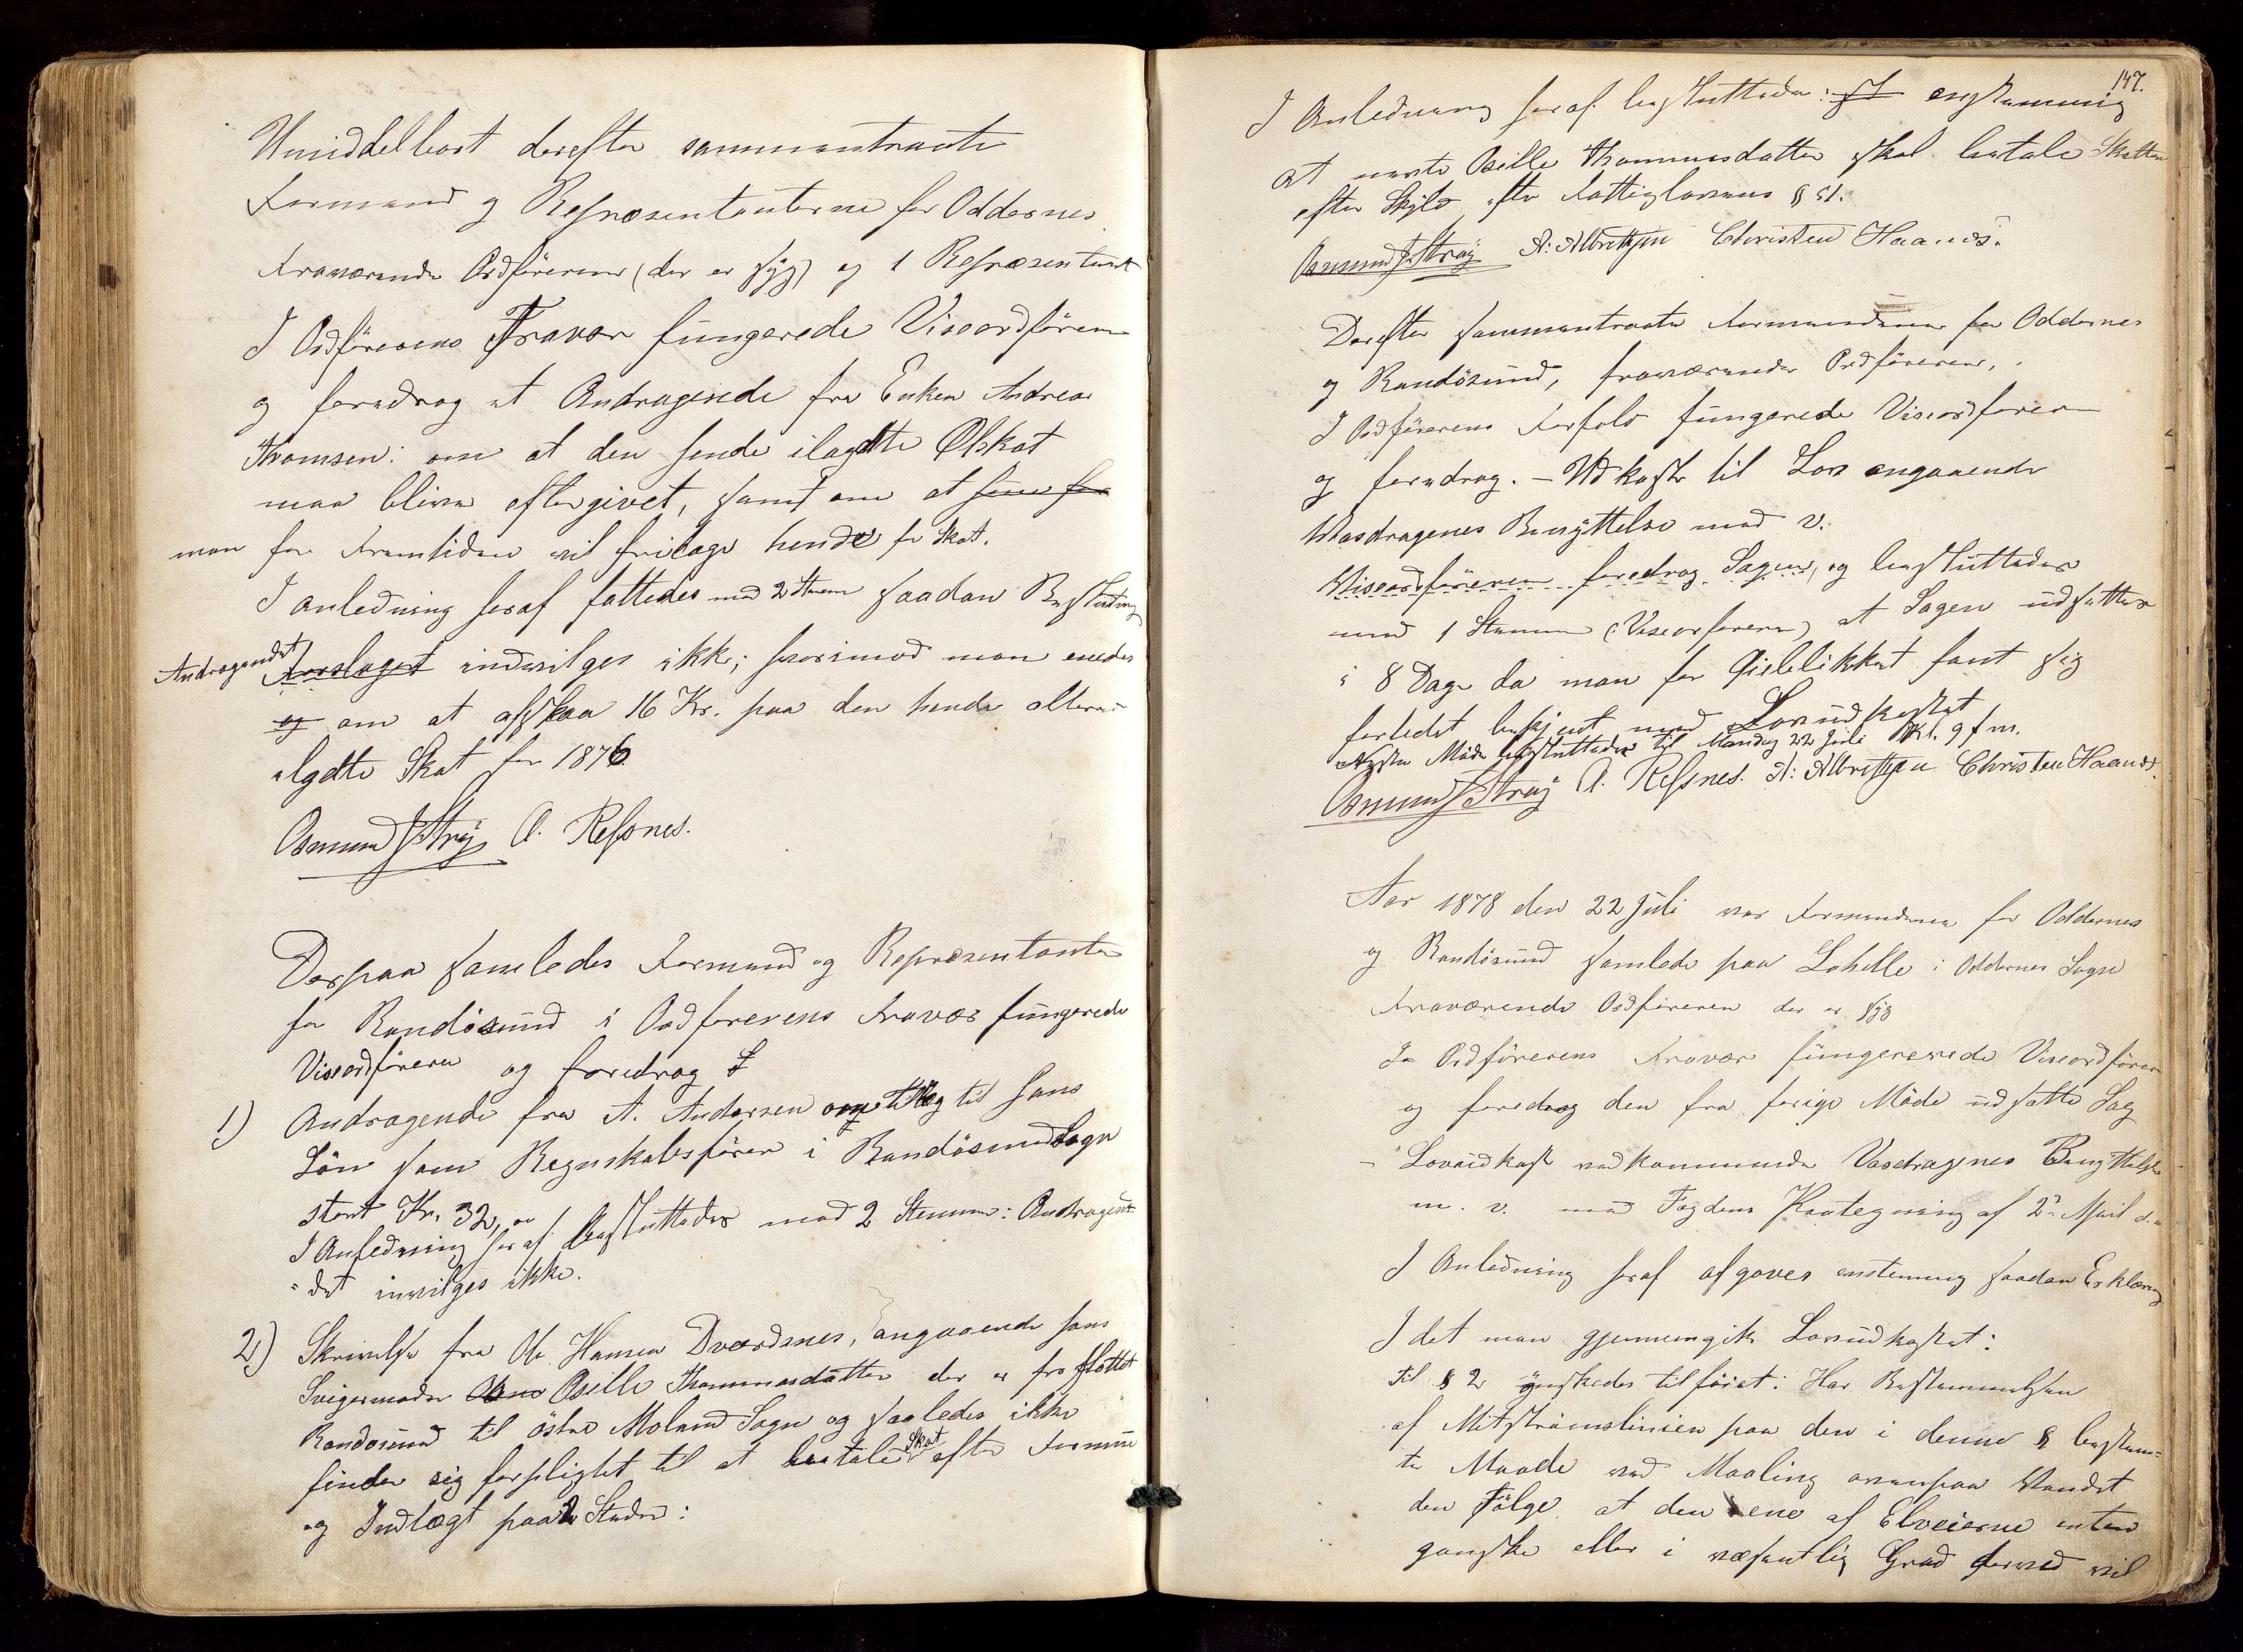 Umiddelbart derefter sammentraadte
Formænd og Repræsentanterne for Oddernes
Fraværende Ordföreren (der er syg) og 1 Repræsentant
I Ordförerens Fravær fungerede Viseordföreren
og foredrog et Andragende fra Enken Andrea
Thomsen: om at den hende ilagdte Ølskat
maa blive eftergivet, samt om at
man for Fremtiden vil fritage hende for Skat.
I anledning heraf fattedes med 2 Stemmer saadan Beslutning
Andragendet Forslaget indvilges ikke; hvorimod man enedes
og om at afslaa 16 Kr. paa den hende allerede
ilgdte Skat for 1876
Osmund J Strøÿ O. Resnes.
Derpaa samledes Formænd og Repræsentanter
for Randösund i Ordforerens Fravær fungerede
Viseordföreren og foredrog
1) Andragende fra A. Andersen om tillæg til hans
Lön som Regnskabsförer i Randösund Sogn
stort Kr. 32,
I Anledning heraf besluttedes med 2 Stemmer: Andragen-
det invilges ikke.
2) Skrivelse fra Ole Hansen Dværdsnes, angaaende hans
Svigermoder Osille Thommesdatter der er fra flöttet
Randösund til östre Moland Sogn og saaledes ikke
finder sig forpligtet til at betale Skat efter Formue
og Indtægt paa 2 Steder:
147.
I Anledning heraf besluttedes: enstemmig
at nævnte Osille Thommesdatter skal betale Skatten
efter Skyld efter Fattiglovens § 51.
Osmund J Strøÿ A: Albretsen Christen Haanes.
Derefter sammentraadte Formændene for Oddernes
og Randösund, fraværende Ordföreren,
I Ordförerens Forfald fungerede Viseordförer
og foredrog. – Udkast til Lov angaaende
Vasdragenes Benÿttelse med v.
Viseordföreren foredrog Sagen, og besluttedes
med 1 Stemme (Viseorförerens) at Sagen udsættes
i 8 Dage da man for Øieblikket fant sig
forledet bekjent med Lovudkastet
Næste Möde besluttedes til Mandag 22 Juli Kl. 9 f m.
Osmund J Strøÿ O. Resnes. A: Albretsen Christen Haanes.
Aar 1878 den 22 Juli var Formændene for Oddernes
og Randösund samlede paa Lohelle i Oddernes Sogn
Fraværende Ordföreren der er syg
I Ordförerens Fravær fungerede Viseordförer
og foredrog den fra forige Möde udsatte Sag
– Lovudkast vedkommende Vasdragenes Benÿttelse
m. v. med Fogdens Paategning af 2n April d.a
I Anledning heraf afgaves enstemmig saadan Erklæring
I det man gjennemgik Lovudkastet:
Til § 2 ynskedes tilföiet: Har Bestemmelsen
af Mitströmslinien paa den i denne § bestem-
te Maade ved Maaling ovenpaa Vandet
den Fölge, at den ene af Elveierne enten
ganske eller i væsentlig Grad herved vil